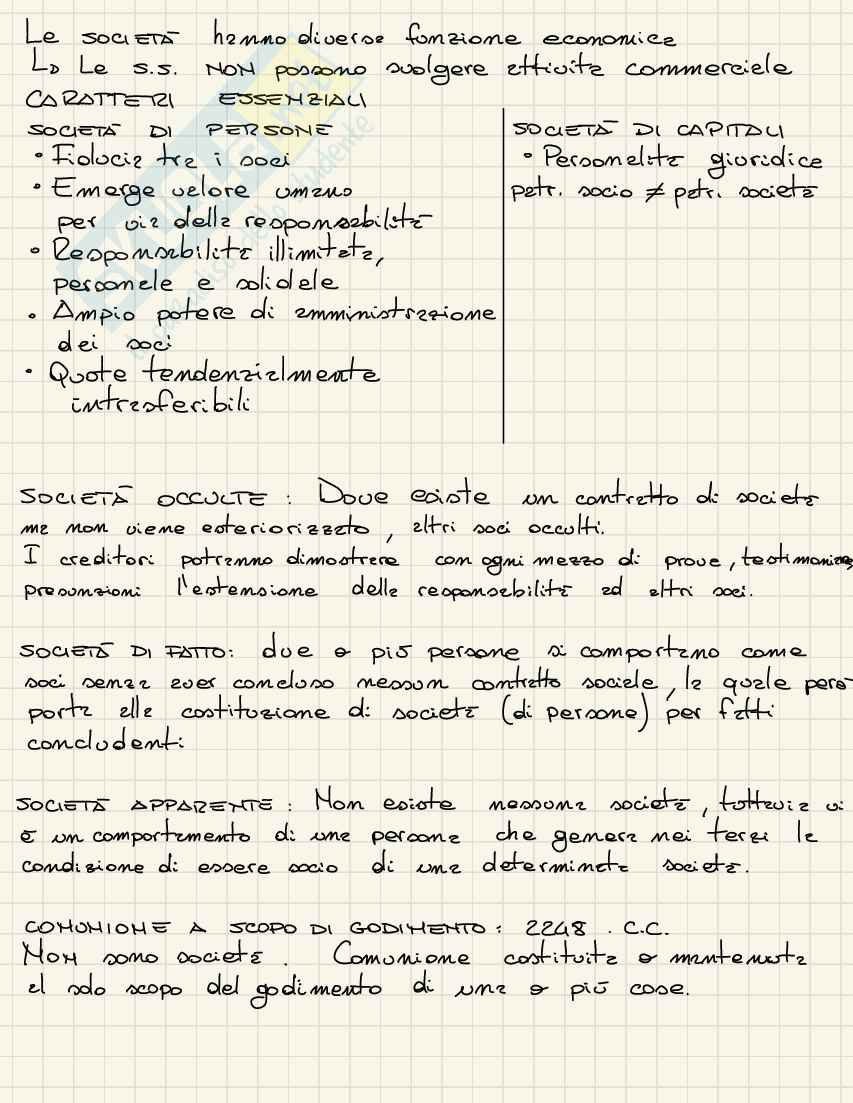 Le SOCIETÀ hanno diversa funzione economica
↳ Le S.S. NON possono svolgere attività commerciale
CARATTERI ESSENZIALI
SOCIETÀ DI PERSONE
• Fiducia tra i soci
• Emerge valore umano
per via della responsabilità
• Responsabilità illimitata,
personale e solidale
• Ampio potere di amministrazione
dei soci
• Quote tendenzialmente
intrasferibili
SOCIETÀ DI CAPITALI
• Personalità giuridica
patr. socio ≠ patr. società
SOCIETÀ OCCULTE : Dove esiste un contratto di società
ma non viene esteriorizzato, altri soci occulti.
I creditori potranno dimostrare con ogni mezzo di prova, testimonianze,
presunzioni l'estensione della responsabilità ad altri soci.
SOCIETÀ DI FATTO: due o più persone si comportano come
soci senza aver concluso nessun contratto sociale, la quale però
porta alla costituzione di società (di persone) per fatti
concludenti
SOCIETÀ APPARENTE : Non esiste nessuna società, tuttavia vi
è un comportamento di una persona che genera nei terzi la
condizione di essere socio di una determinata società.
COMUNIONE A SCOPO DI GODIMENTO : 2248 . C.C.
NON sono società . Comunione costituita o mantenuta
al solo scopo del godimento di una o più cose.